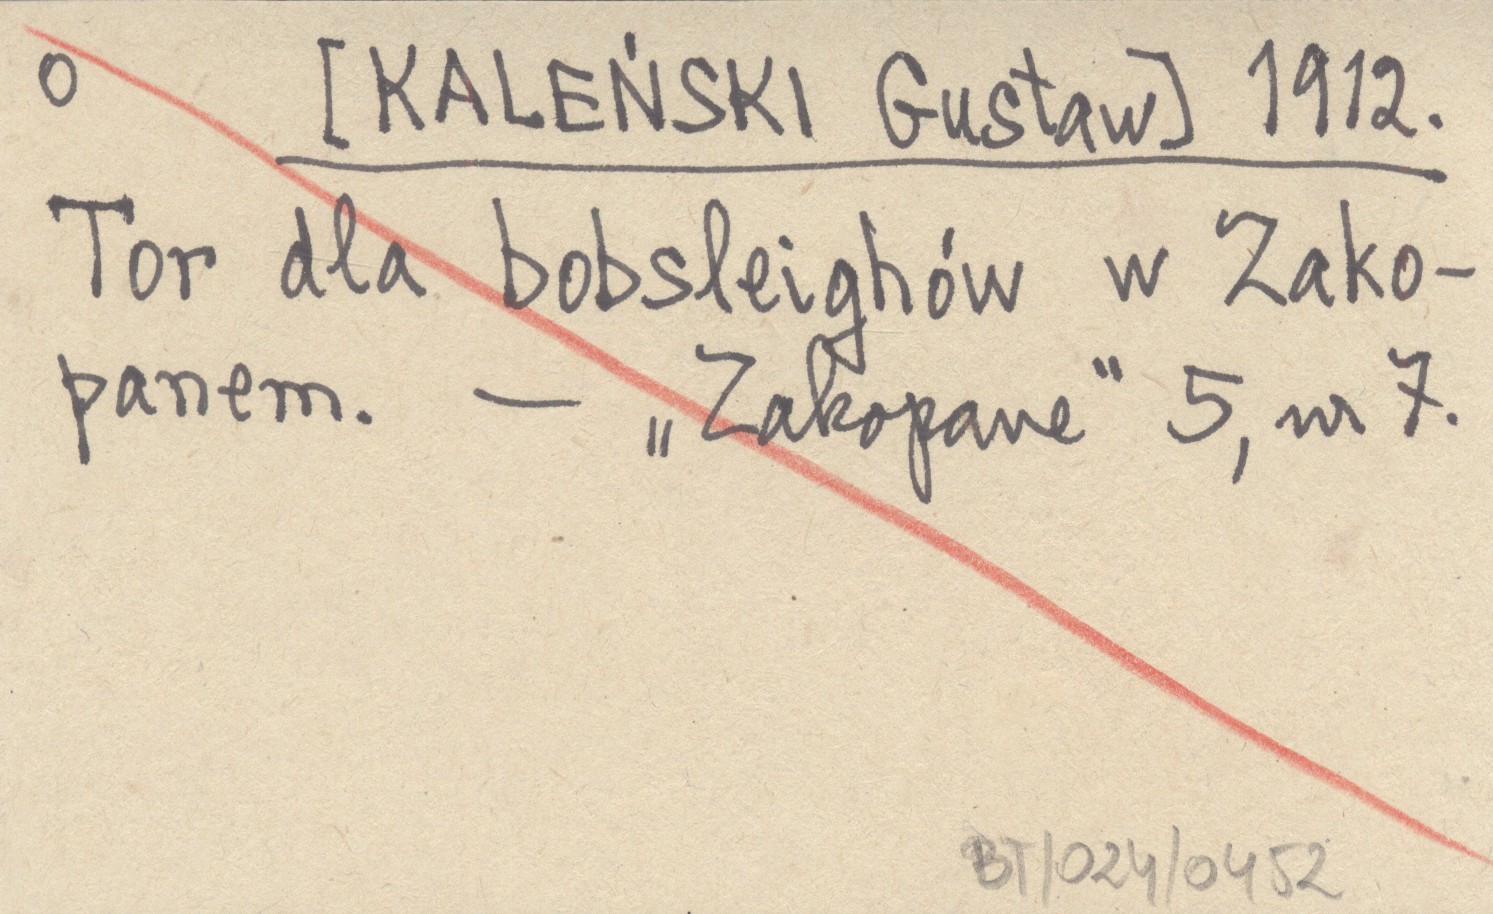 o [KALEŃSKI Gustaw] 1912.
Tor dla bobsleighów w Zako-
panem. — „Zakopane" 5, nr 7.
BT/024/0452